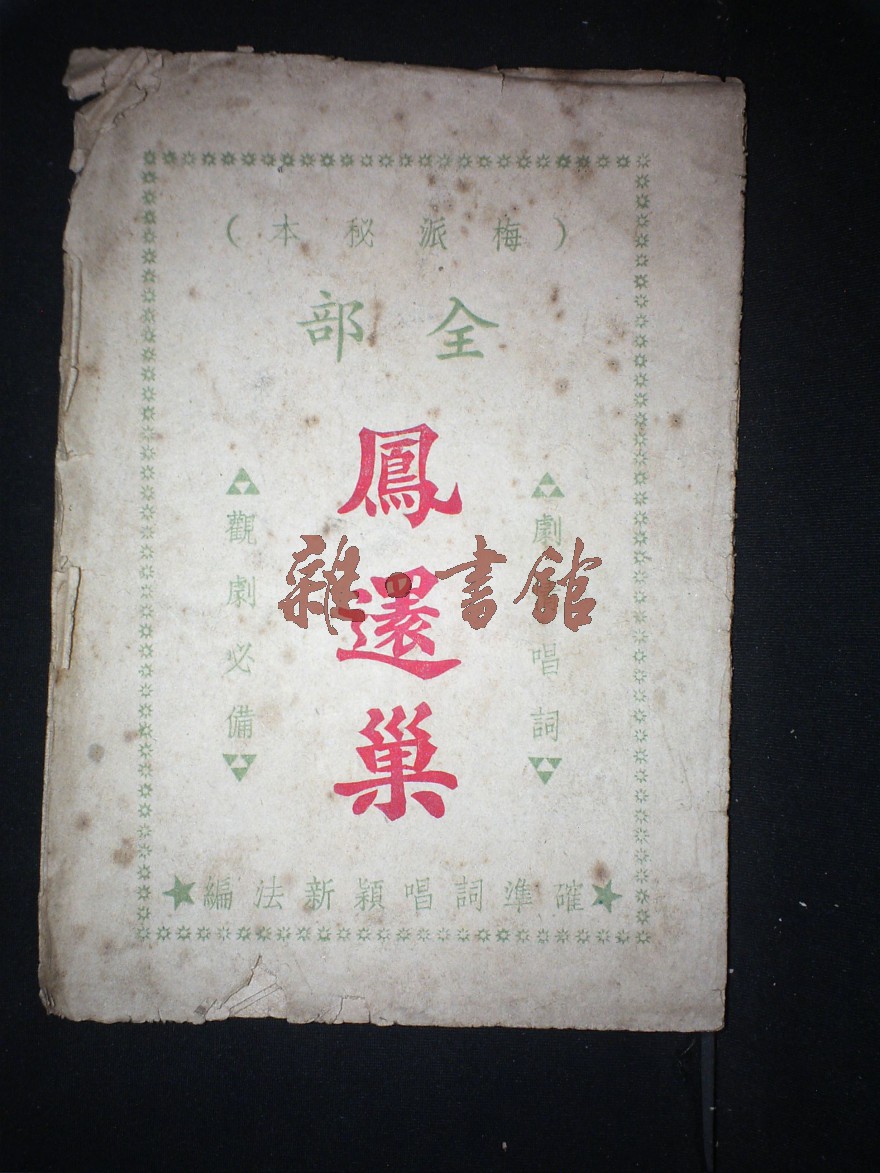 （梅派秘本）
全部
劇唱詞
鳳還巢
觀劇必備
編法新穎唱詞準確
雜·書館